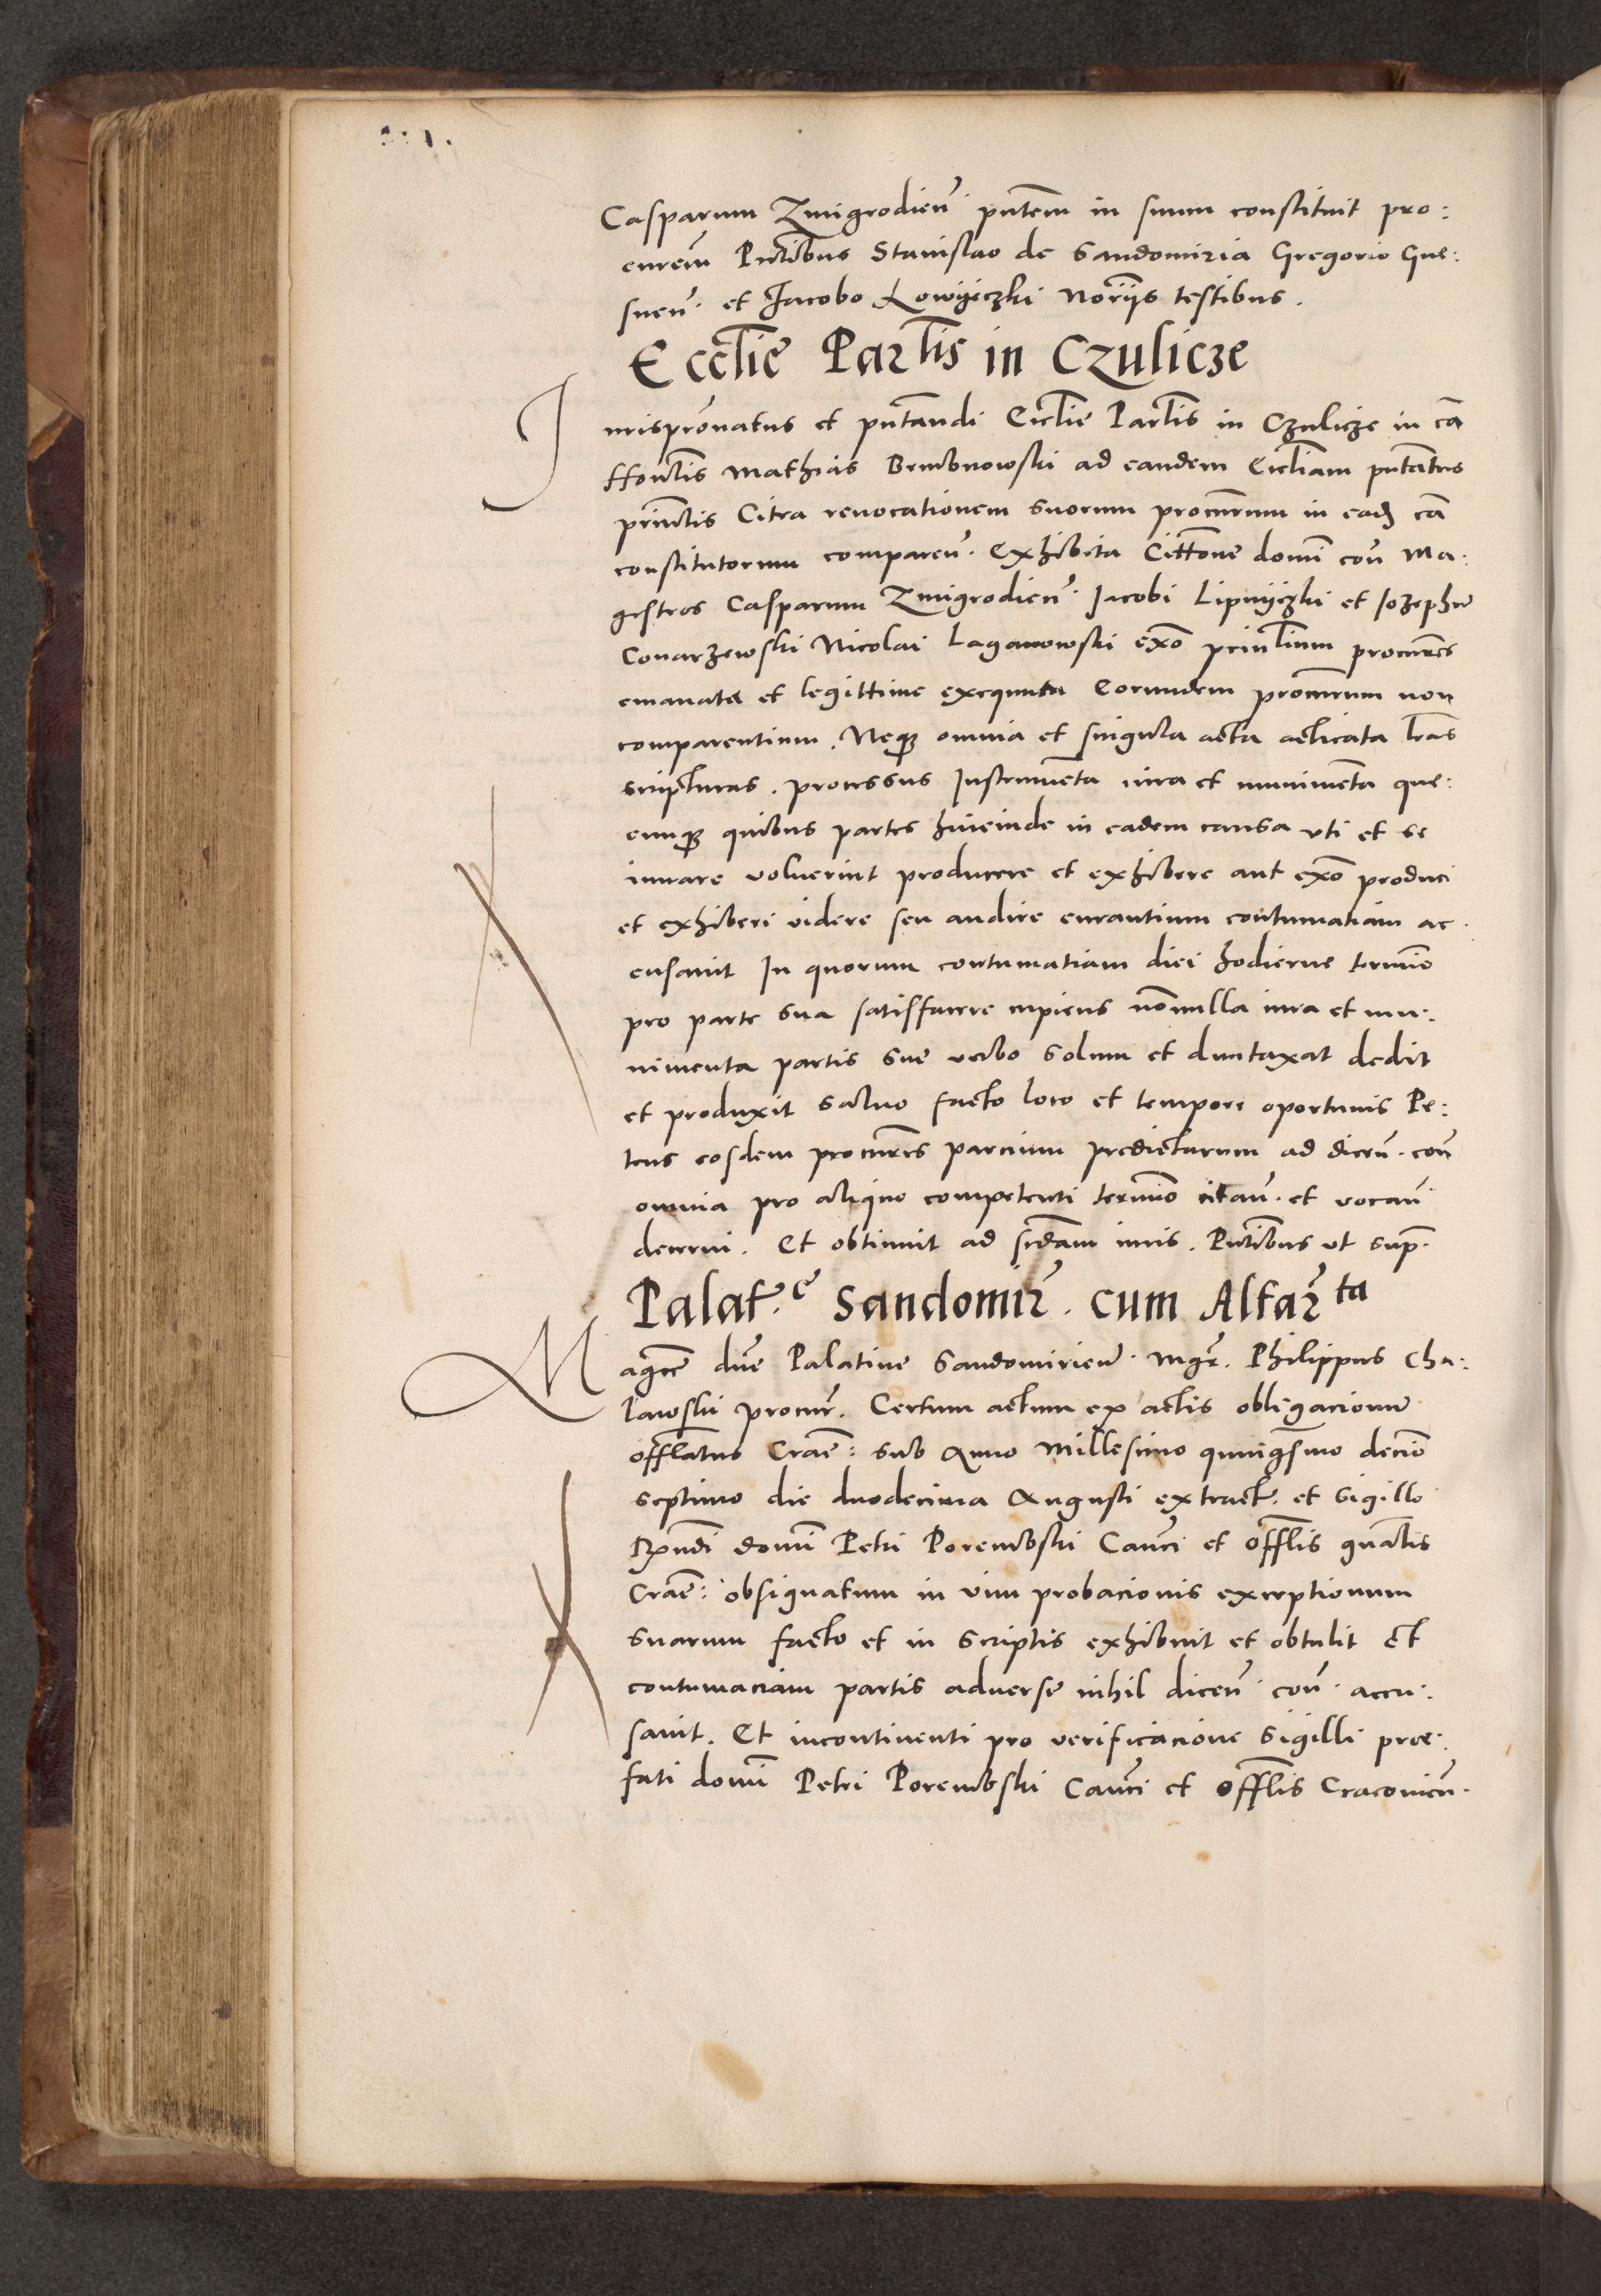 Casparum Zmigrodien̄ pn̄tem in suum constituit pro:
curem̄ Pn̄tibus Stanislao de Sandomiria Gregorio Gne:
snen̄. et Jacobo Lowyczki Nor̄ijs testibus.
Eccl̄ie Par̄lis in Czulicze
Jurispr̄onatus et pn̄tandi Eccl̄ie Parl̄is in Czulicze in cā
ffonl̄is Mathias Brmbnowski ad eandem Eccl̄iam pn̄tatus
prin̄lis Citra revocationem suorum procur̄um in ead cā
constitutorum comparen̄. Exhibita Citt̄one domī con̄ Ma.
gistros Casparum Zmigrodien̄. Jacobi Lipnyczki et Jozephū
Conarzewski Nicolai Laganowski exō prin̄lium procur̄es
emanata et legittime exequuta Eorundem procur̄um non
comparentium. Neqꝫ omnia et singula acta acticata lr̄as
scripturas. processus Instrumēta iura et munimēta que:
cunqꝫ quibus partes hincinde in eadem causa uti et se
iuuare voluerint producere et exhibere aut exō produci
et exhiberi videre seu audire curantium contumatiam ac.
cusauit In quorum contumatiam diei hodierne termīo
pro parte sua satisfacere cupiens nōnulla iura et mu:
nimenta partis sue verbo solum et duntaxat dedit
et produxit saluo facto loco et tempore oportunis Pe:
tens eosdem procur̄es parcium predictarum ad dicen̄. con̄
omnia pro aliquo competenti termīo citan̄. et vocan̄
decerni. Et obtinuit ad scd̄am iuris. Pn̄tibus ut sup.
Palat.e Sandomir̄. cum Altar̄ta
Magc̄e dn̄e Palatine Sandomirien̄. Mgr̄. Philippus Cha:
lawski procur̄. Certum actum ex actis obligacionū
offl̄atus Crac̄: sub Anno Millesimo quingsm̄o decīo
septimo die duodecima Augusti extract. et Sigillo
Rn̄di domī Petri Porembski Can̄ci et Offl̄is gn̄alis
Crac̄: obsignatum in vim probacionis exceptionum
suarum facto et in scriptis exhibuit et obtulit Et
contumaciam partis aduerse nihil dicen̄ con̄. accu:
sauit. Et incontinenti pro verificacione sigilli pree:
fati domī Petri Porembski Can̄ci et Offl̄is Cracouien̄.